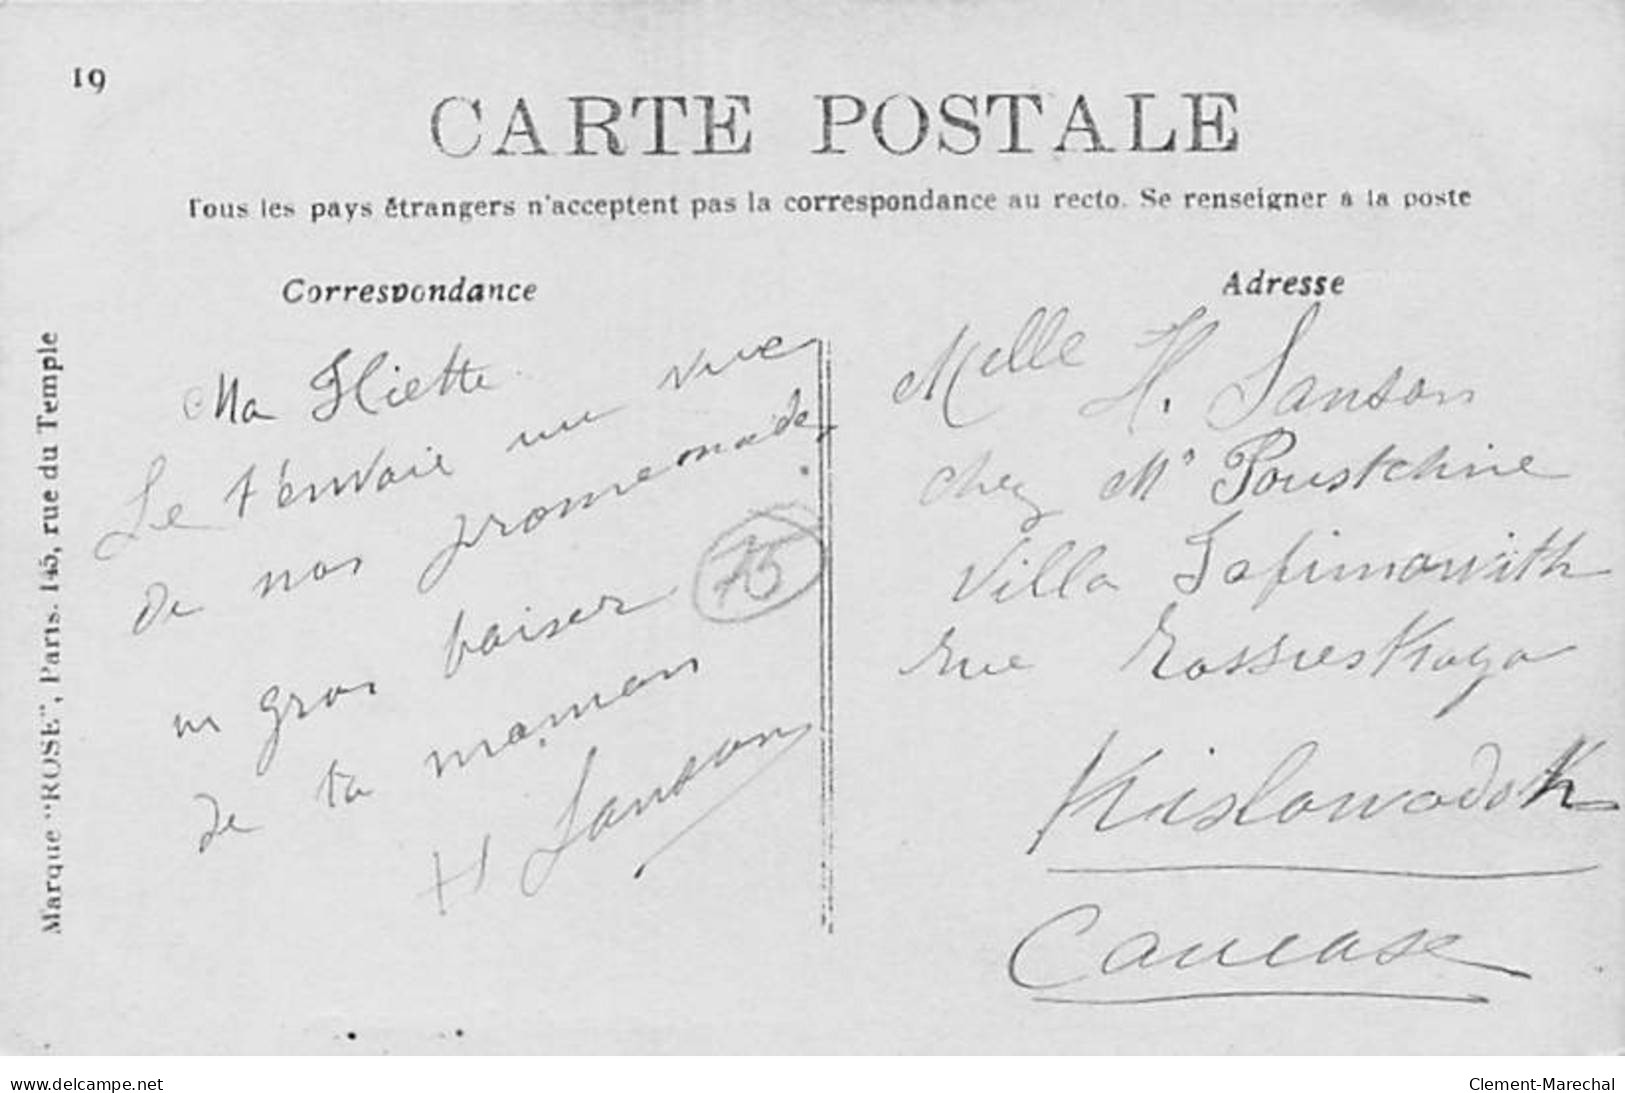 19
CARTE POSTALE
Tous les pays étrangers n'acceptent pas la correspondance au recto. Se renseigner à la poste
Correspondance
Ma Iliette
Je t'envoie une vue
de nos promenades.
un gros baiser
de ta maman
H Sanson
75
Adresse
Melle H. Sanson
chez Mr Poustchine
Villa
rue Rossieskaya
Kislowodok
Caucase
Marque "ROSE", Paris. 145, rue du Temple
www.delcampe.net
Clement-Marechal